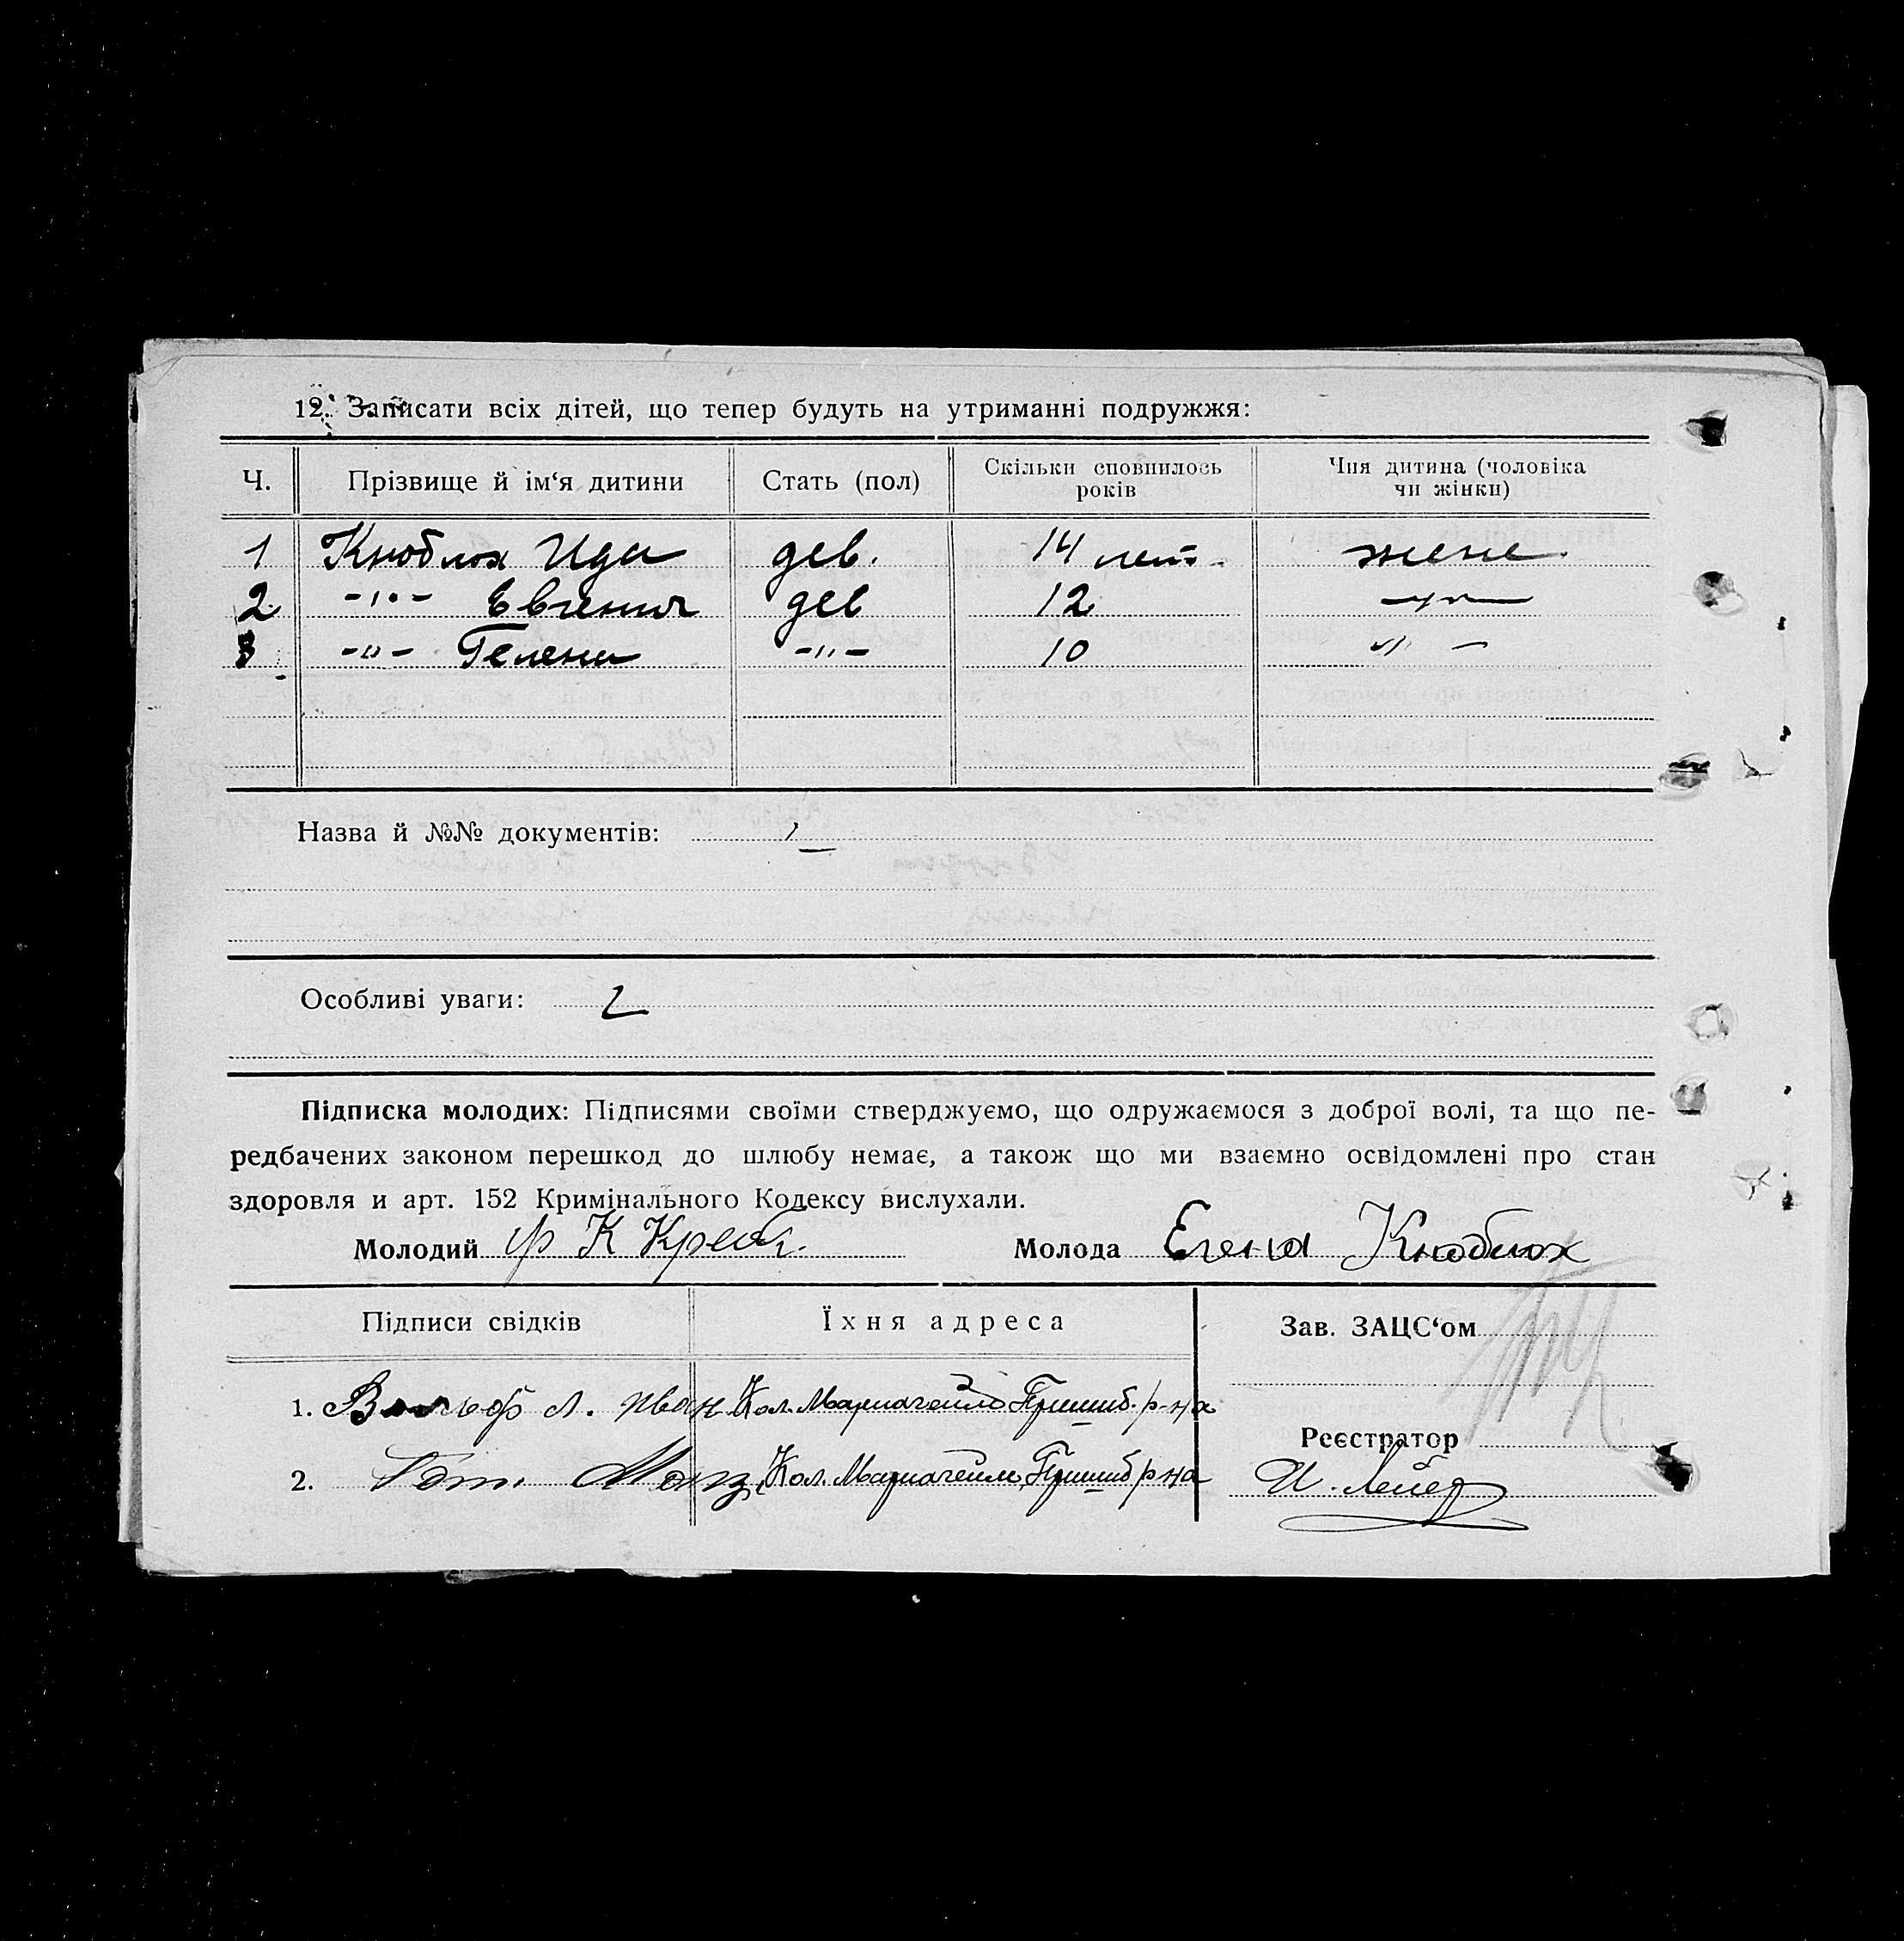 12. Записати всіх дітей, що тепер будуть на утриманні подружжя:
Ч. Прізвище й ім‘я дитини Стать (пол) Скільки сповнилось років Чия дитина (чоловіка чи жінки)
1 Кноблох Ида дев. 14 лет жене.
2 -"- Евгения дев 12 -"-
3 -"- Гелена -"- 10 -"-
Назва й №№ документів:
Особливі уваги:
Підписка молодих: Підписями своїми стверджуємо, що одружаємося з доброї волі, та що пе-
редбачених законом перешкод до шлюбу немає, а також що ми взаємно освідомлені про стан
здоровля и арт. 152 Кримінального Кодексу вислухали.
Молодий К Молода Елена Кноблох
Підписи свідків Їхня адреса Зав. ЗАЦС‘ом
1. Вольф Л. Иван Кол. Мариагейм Пришиб. р-на
Реєстратор
2. Кол. Мариагейм Пришиб р-на